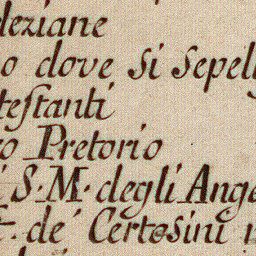 leziane
o dove si sepell
testanti
o Pretorio
S. M. degli Ange
t. de' Certosini